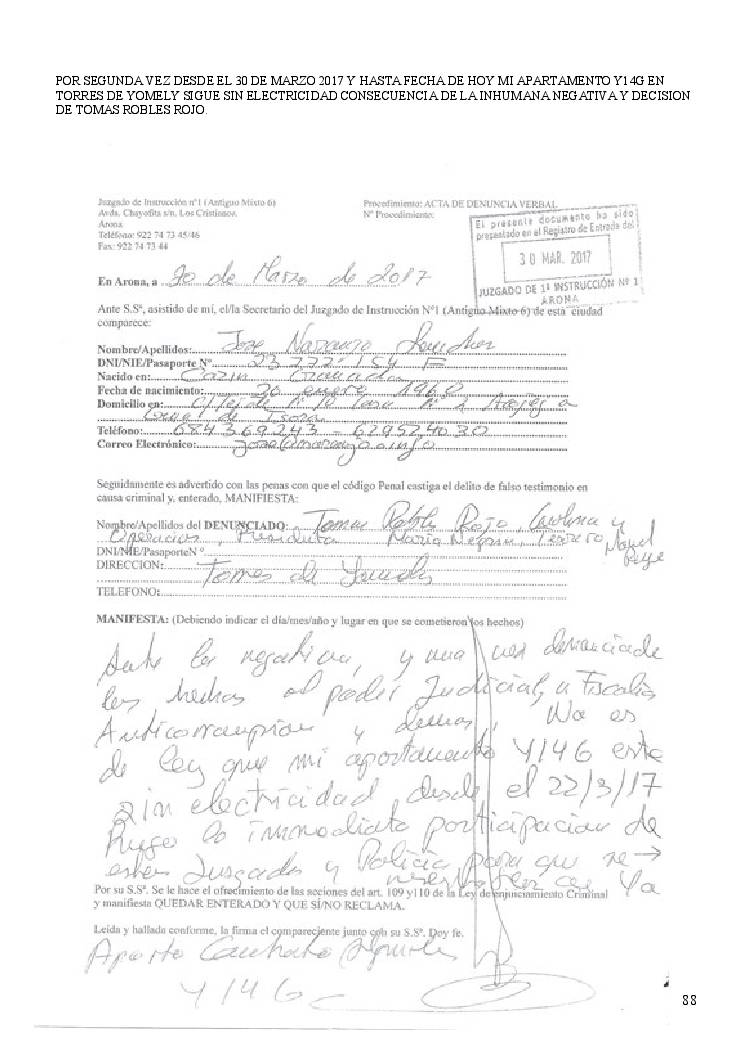 POR SEGUNDA VEZ DESDE EL 30 DE MARZO 2017 Y HASTA FECHA DE HOY MI APARTAMENTO Y14G EN
TORRES DE YOMELY SIGUE SIN ELECTRICIDAD CONSECUENCIA DE LA INHUMANA NEGATIVA Y DECISION
DE TOMAS ROBLES ROJO.
Juzgado de Instrucción nº1 (Antiguo Mixto 6)
Avda. Chayofita s/n. Los Cristianos.
Arona.
Teléfono: 922 74 73 45/46
Fax: 922 74 73 44
Procedimiento: ACTA DE DENUNCIA VERBAL
Nº Procedimiento:
El presente documento ha sido
presentado en el Registro de Entrada del
30 MAR. 2017
JUZGADO DE 1ª INSTRUCCIÓN Nº 1
ARONA
En Arona, a 30 de Marzo de 2017
Ante S.Sª, asistido de mí, el/la Secretario del Juzgado de Instrucción Nº1 (Antiguo Mixto 6) de esta ciudad
comparece:
Nombre/Apellidos: Jose Naranjo
DNI/NIE/Pasaporte Nº
Nacido en: Granada
Fecha de nacimiento: 20 enero 1960
Domicilio en:
de Isora
Teléfono: 684369243 - 629524030
Correo Electrónico:
Seguidamente es advertido con las penas con que el código Penal castiga el delito de falso testimonio en
causa criminal y, enterado, MANIFIESTA:
Nombre/Apellidos del DENUNCIADO: Tomas Robles Rojo, Carolina y
Presidenta Maria
DNI/NIE/PasaporteNº
DIRECCION: Torres de Yomely
TELEFONO:
MANIFESTA: (Debiendo indicar el día/mes/año y lugar en que se cometieron los hechos)
Ante la negativa, y una vez denunciado
los hechos al poder Judicial, a Fiscalía
Anticorrupcion y demas, No es
de ley que mi apartamento Y14G este
sin electricidad desde el 22/3/17
Ruego la immediata participacion de
estes Juzgado y Policia para que se →
Ya
Por su S.Sª. Se le hace el ofrecimiento de las acciones del art. 109 y110 de la Ley de enjuiciamiento Criminal
y manifiesta QUEDAR ENTERADO Y QUE SÍ/NO RECLAMA.
Leída y hallada conforme, la firma el compareciente junto con su S.Sª. Doy fe.
Aporto Contrato Alquiler
Y14G
88